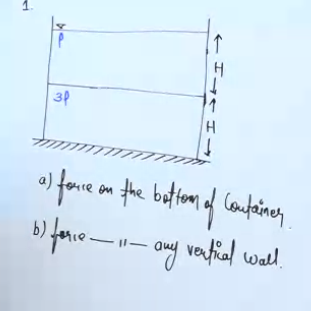 1.
ρ
H
3ρ
H
a) force on the bottom of Container.
b) force — 11 — any vertical wall.